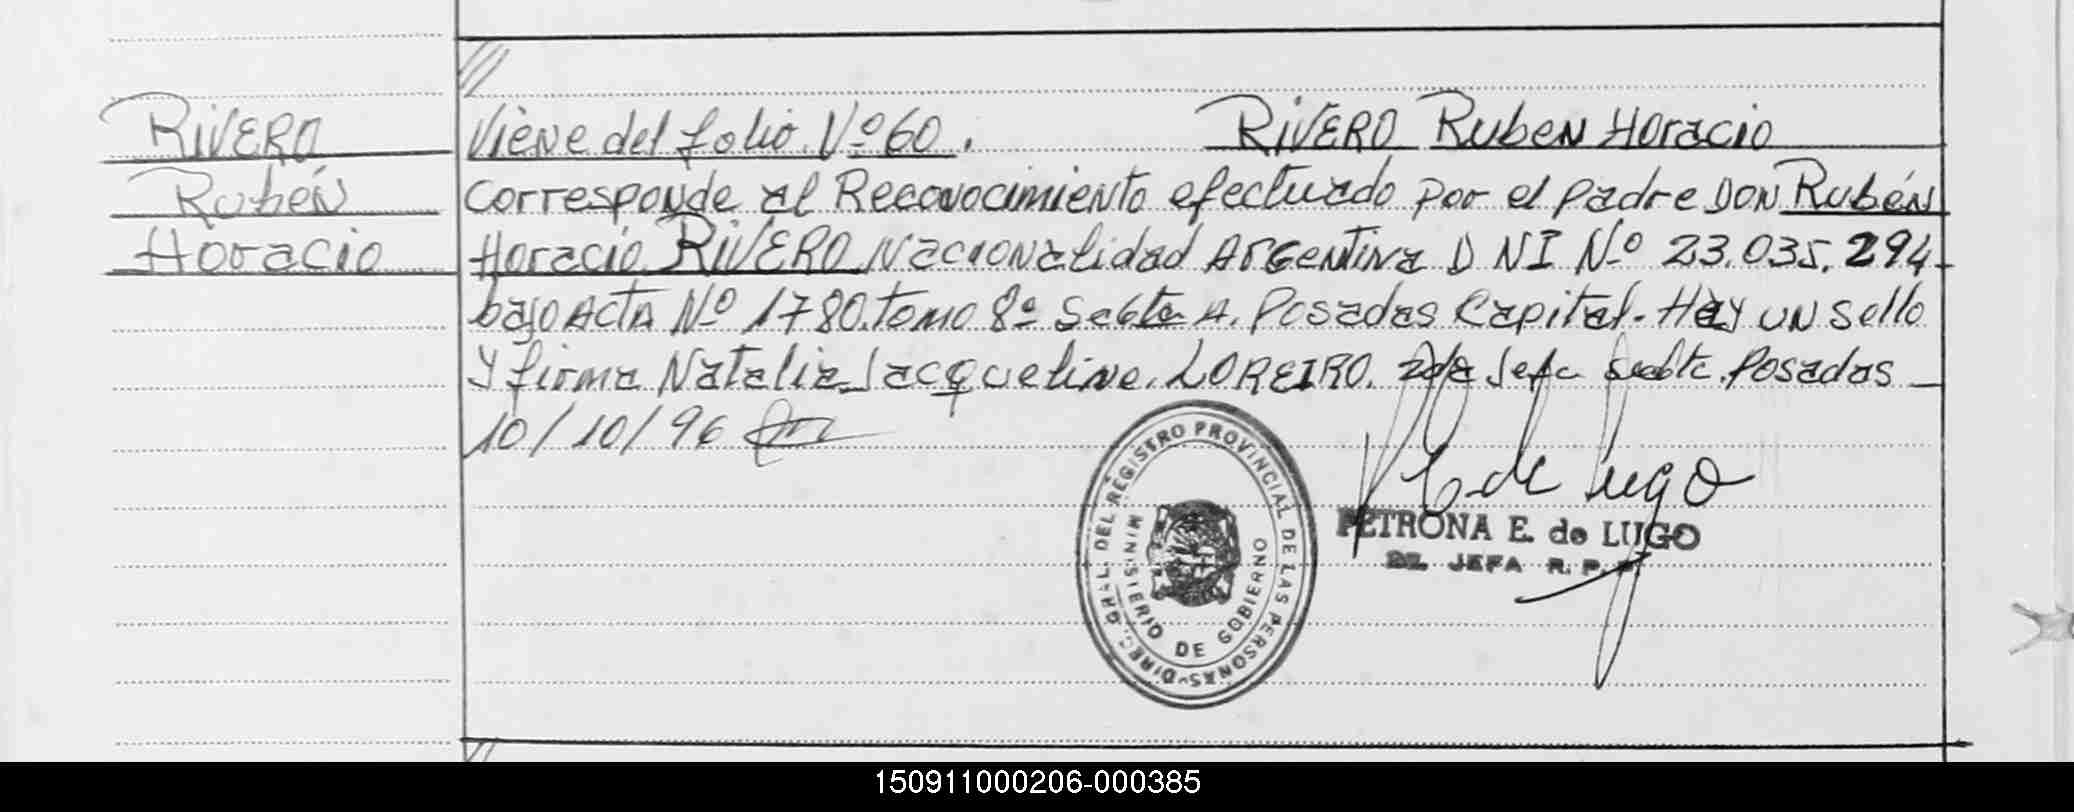 RIVERO
Rubén
Horacio
Viene del folio Nº 60. RIVERO Ruben Horacio
Corresponde al Reconocimiento efectuado por el padre DON Rubén
Horacio RIVERO Nacionalidad Argentina D NI Nº 23.035.294
bajo Acta Nº 1780. tomo 8º Secta A. Posadas Capital. Hay un sello
y firma Natalia Jacqueline LOREIRO. Jefa Posadas
10/10/96
DIREC. GRAL. DEL REGISTRO PROVINCIAL DE LAS PERSONAS
MINISTERIO DE GOBIERNO
de Lugo
PETRONA E. de LUGO
JEFA R. P.
150911000206-000385